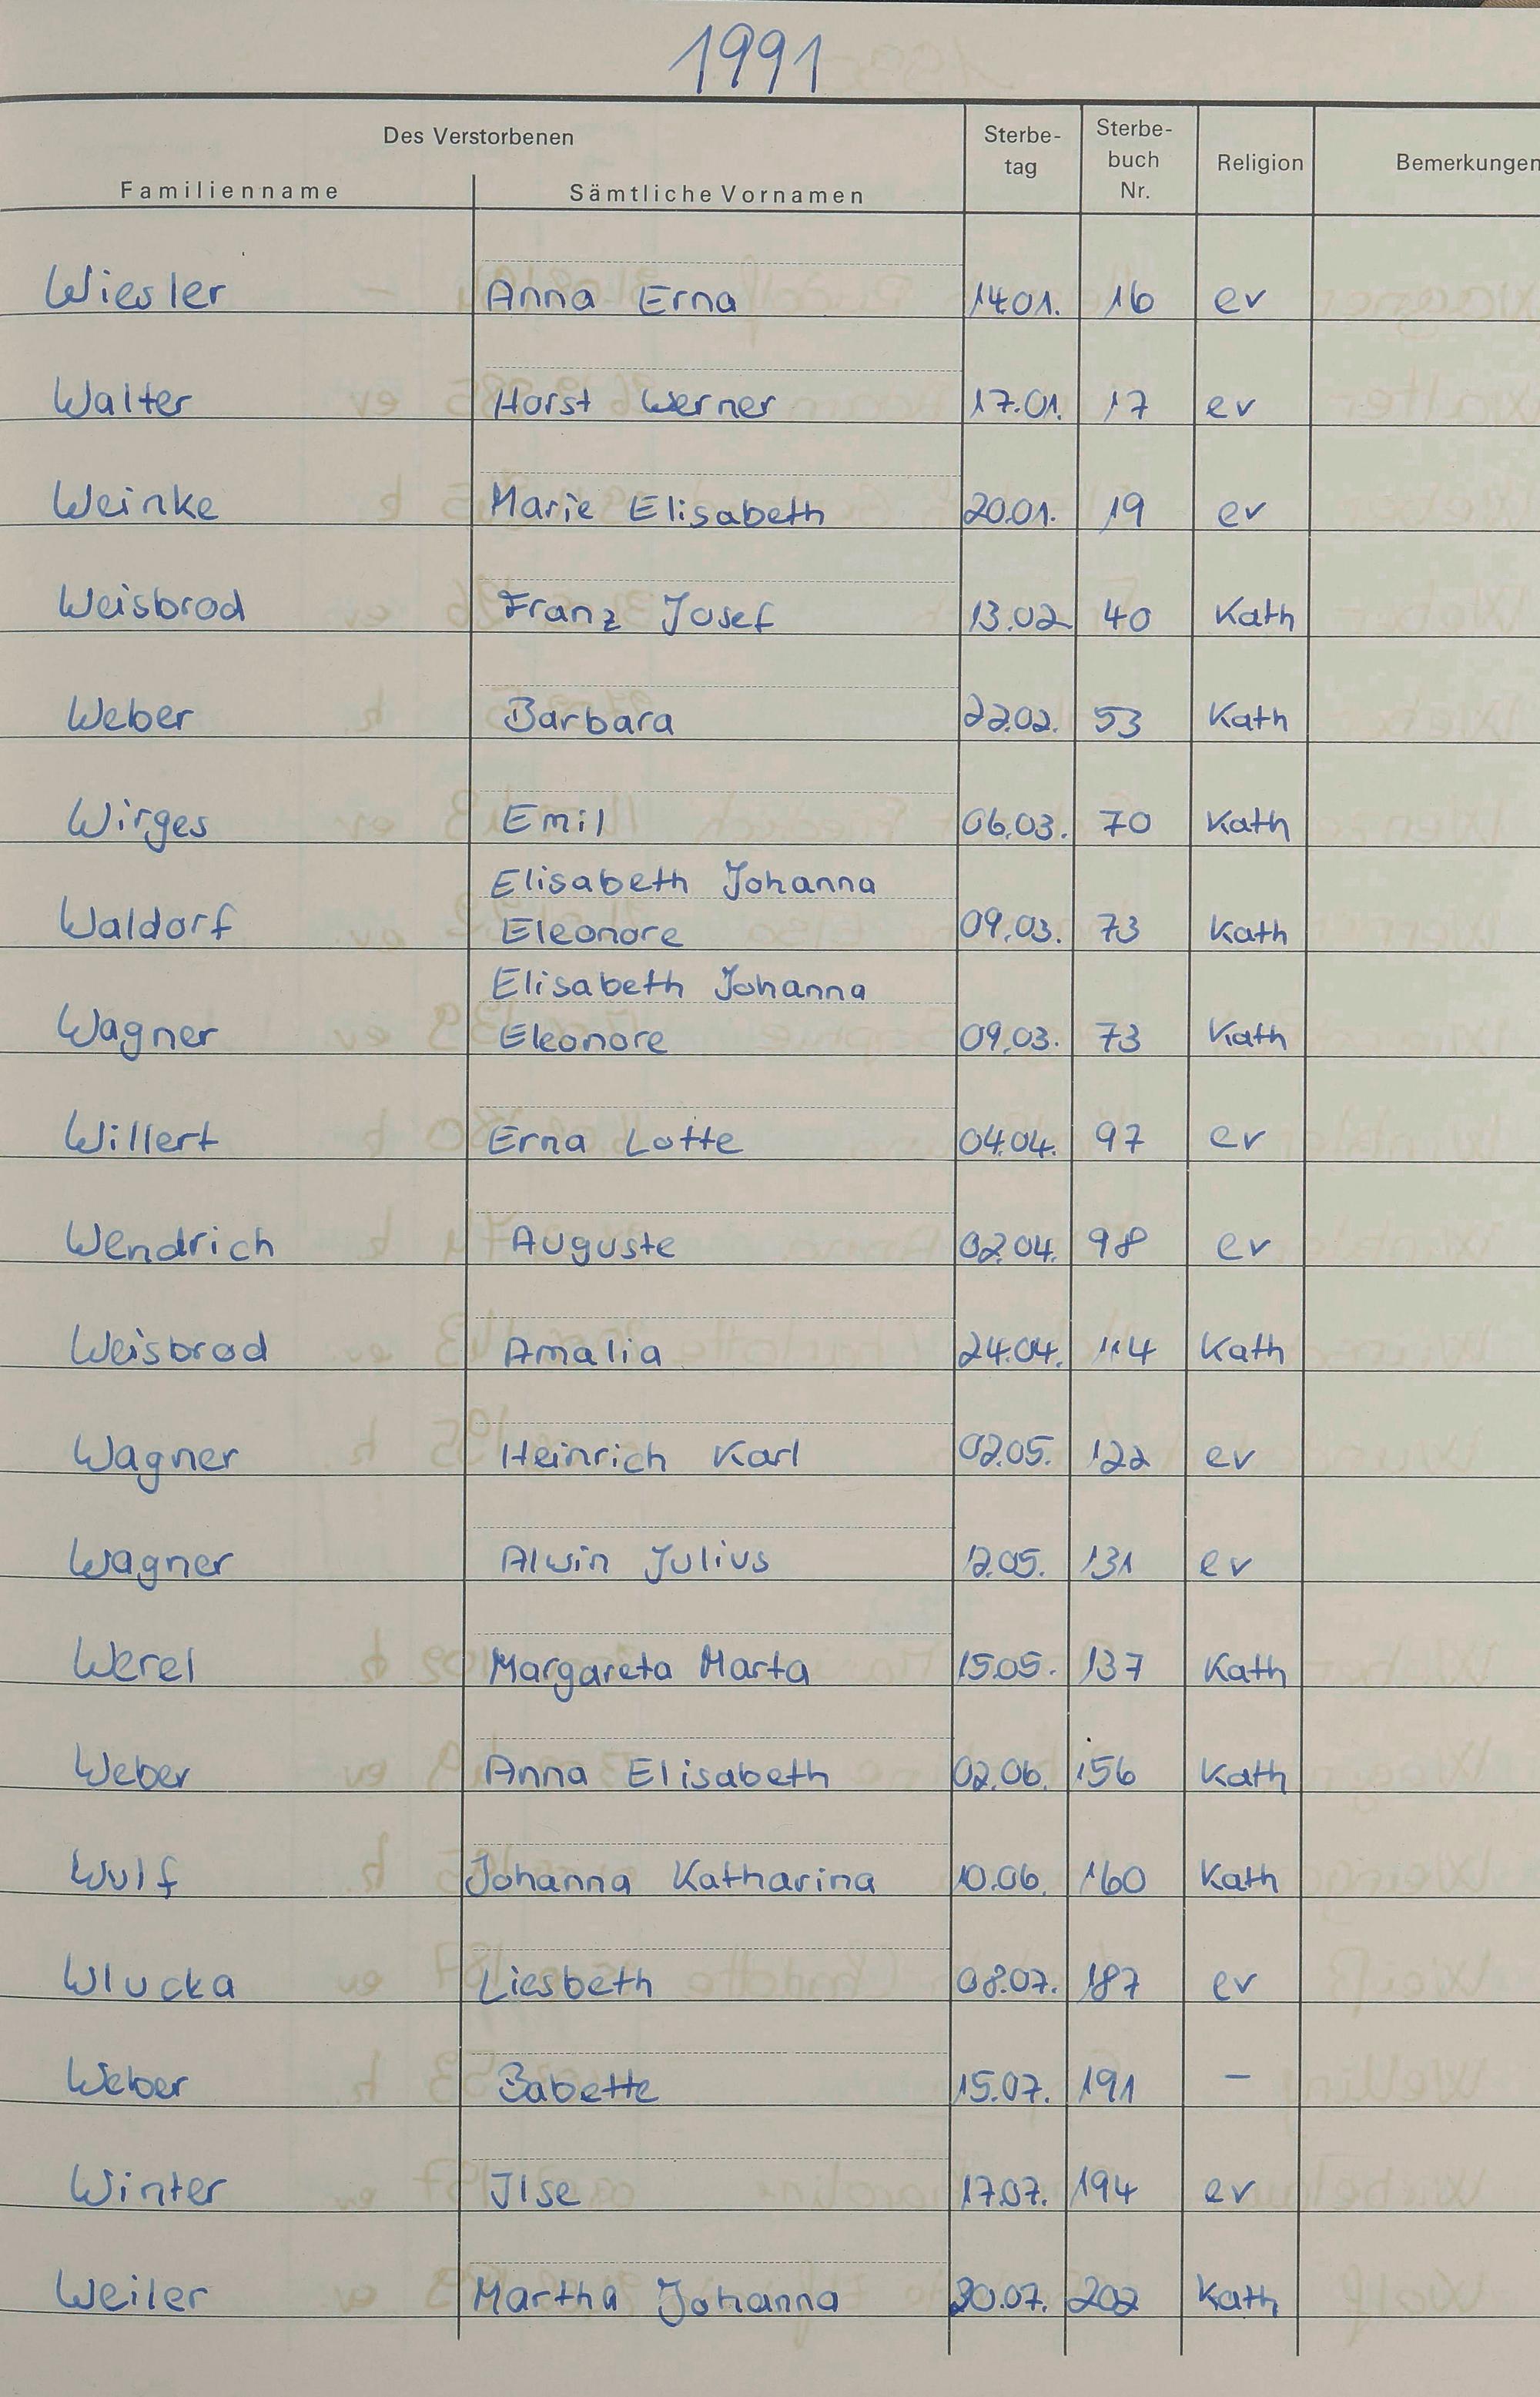 1991
Des Verstorbenen Sterbe- Sterbe-
tag buch Religion Bemerkungen
Familienname Sämtliche Vornamen Nr.
Wiesler Anna Erna 14.01. 16 ev
Walter Horst Werner 17.01. 17 ev
Weinke Marie Elisabeth 20.01. 19 ev
Weisbrod Franz Josef 13.02 40 Kath
Weber Barbara 22.02. 53 Kath
Wirges Emil 06.03. 70 Kath
Elisabeth Johanna
Waldorf Eleonore 09.03. 73 Kath
Elisabeth Johanna
Wagner Eleonore 09.03. 73 Kath
Willert Erna Lotte 04.04. 97 ev
Wendrich Auguste 02.04. 98 ev
Weisbrod Amalia 24.04. 114 Kath
Wagner Heinrich Karl 02.05. 122 ev
Wagner Alwin Julius 12.05. 131 ev
Werel Margareta Marta 15.05. 137 Kath
Weber Anna Elisabeth 02.06. 156 Kath
Wulf Johanna Katharina 10.06. 160 Kath
Wlucka Liesbeth 08.07. 187 ev
Weber Babette 15.07. 191 –
Winter Ilse 17.07. 194 ev
Weiler Martha Johanna 20.07. 202 Kath